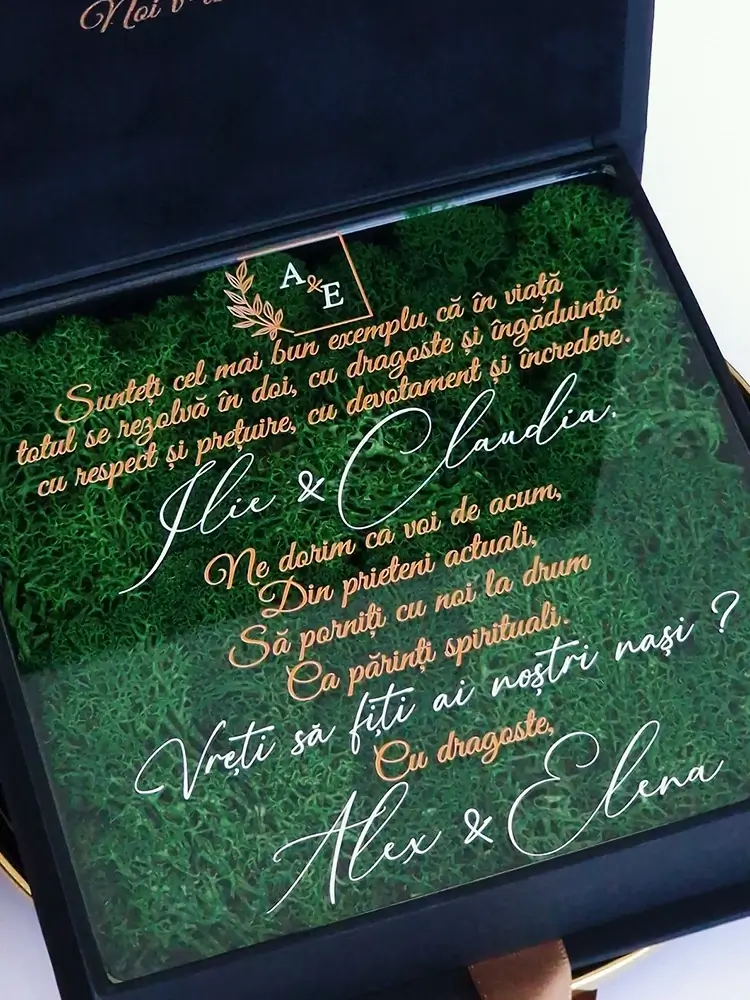 Noi
A & E
Sunteți cel mai bun exemplu că în viață
totul se rezolvă în doi, cu dragoste și îngăduință
cu respect și prețuire, cu devotament și încredere.
Ilie & Claudia.
Ne dorim ca voi de acum,
Din prieteni actuali,
Să porniți cu noi la drum
Ca părinți spirituali.
Vreți să fiți ai noștri nași ?
Cu dragoste,
Alex & Elena